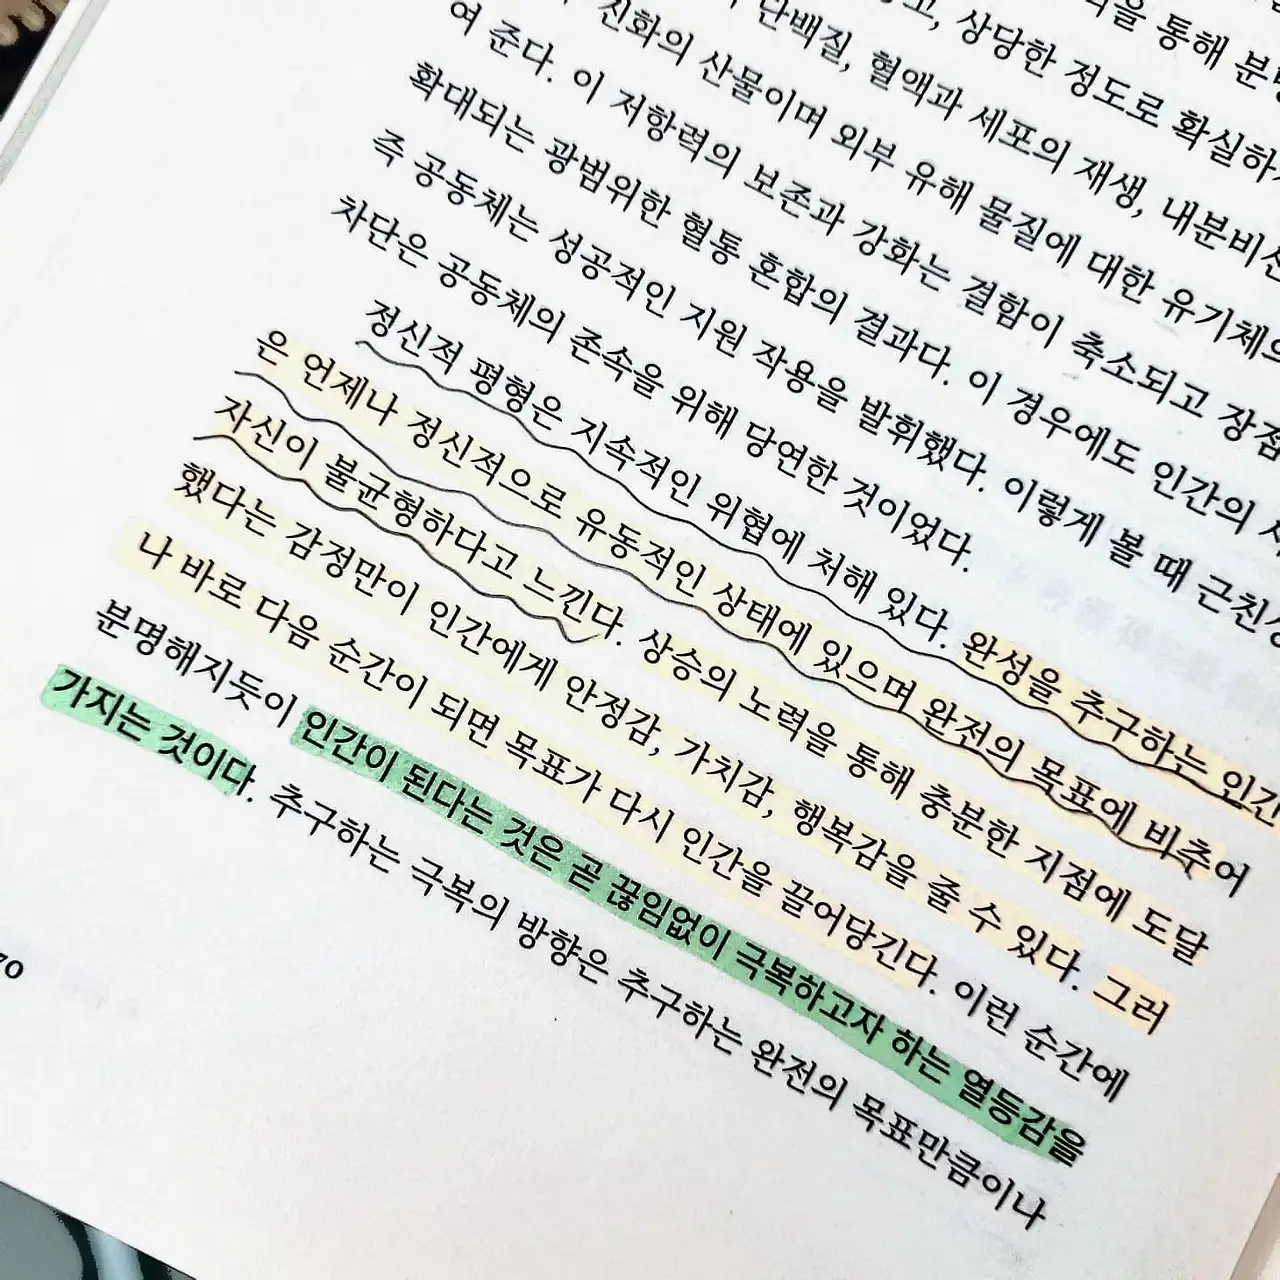 을 통해 분명
상당한 정도로 확실하
단백질, 혈액과 세포의 재생, 내분비선
진화의 산물이며 외부 유해 물질에 대한 유기체의
여 준다. 이 저항력의 보존과 강화는 결함이 축소되고 장점
확대되는 광범위한 혈통 혼합의 결과다. 이 경우에도 인간의
즉 공동체는 성공적인 지원 작용을 발휘했다. 이렇게 볼 때 근친상
차단은 공동체의 존속을 위해 당연한 것이었다.
정신적 평형은 지속적인 위협에 처해 있다. 완성을 추구하는 인간
은 언제나 정신적으로 유동적인 상태에 있으며 완전의 목표에 비추어
자신이 불균형하다고 느낀다. 상승의 노력을 통해 충분한 지점에 도달
했다는 감정만이 인간에게 안정감, 가치감, 행복감을 줄 수 있다. 그러
나 바로 다음 순간이 되면 목표가 다시 인간을 끌어당긴다. 이런 순간에
분명해지듯이 인간이 된다는 것은 곧 끊임없이 극복하고자 하는 열등감을
가지는 것이다. 추구하는 극복의 방향은 추구하는 완전의 목표만큼이나
70